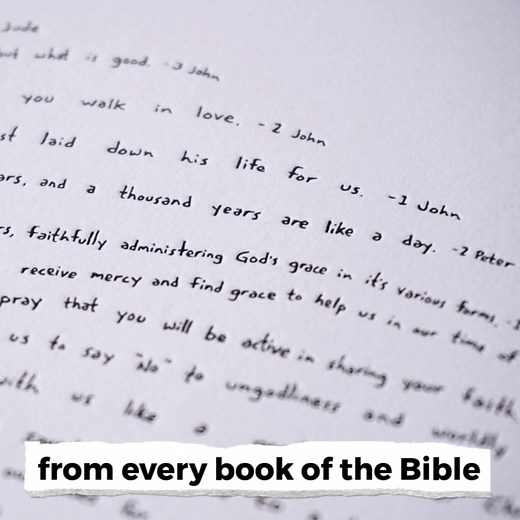 Jude
but what is good. -3 John
you walk in love. -2 John
laid down his life for us. -1 John
and a thousand years are like a day. -2 Peter
faithfully administering God's grace in it's various forms.
receive mercy and find grace to help us in our time of
pray that you will be active in sharing your faith
us to say "No" to ungodliness and worldly
with us like a
from every book of the Bible